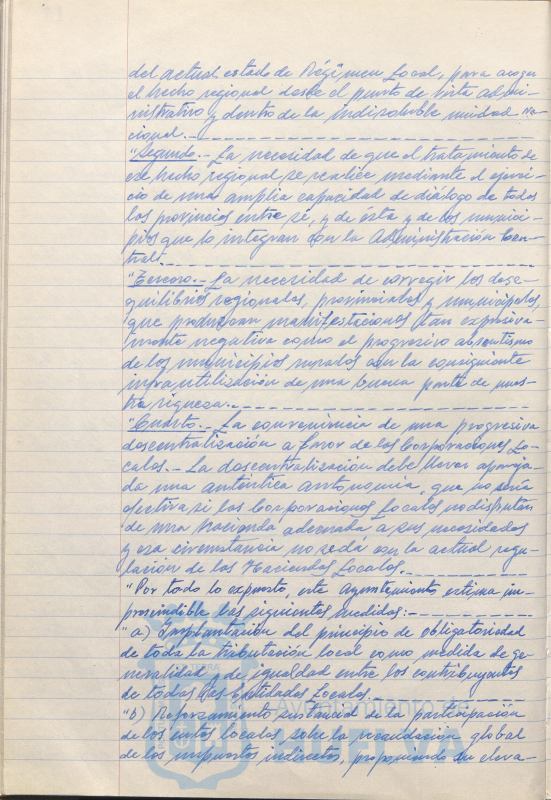 del actual estado de Régimen Local, para acoger
el hecho regional desde el punto de vista admi-
nistrativo y dentro de la indisoluble unidad na-
cional.-
"Segundo.- La necesidad de que el tratamiento de
ese hecho regional se realice mediante el ejerci-
cio de una amplia capacidad de diálogo de todas
las provincias entre sí, y de ésta y de los munici-
pios que la integran con la Administración Cen-
tral.-
"Tercero.- La necesidad de corregir los dese-
quilibrios regionales, provinciales y municipales,
que produzcan manifestaciones tan expresiva-
mente negativa como el progresivo absentismo
de los municipios rurales con la consiguiente
infrautilización de una buena parte de nues-
tra riqueza.-
"Cuarto.- La conveniencia de una progresiva
descentralización a favor de las Corporaciones Lo-
cales.- La descentralización debe llevar apareja-
da una auténtica autonomía, que no sería
efectiva si las Corporaciones Locales no disfrutan
de una hacienda adecuada a sus necesidades
y esa circunstancia no se dá con la actual regu-
lación de las Haciendas Locales.-
"Por todo lo expuesto, este Ayuntamiento, estima im-
prescindible las siguientes medidas:-
"a) Implantación del principio de obligatoriedad
de toda la tributación local como medida de ge-
neralidad y de igualdad entre los contribuyentes
de todas las Entidades Locales.
"b) Reforzamiento sustancial de la participación
de los entes locales sobre la recaudación global
de los impuestos indirectos, propiciando su eleva-
Ayuntamiento de
HUELVA